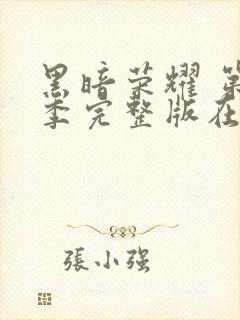 黑暗荣耀 第
季完整版在
張小强